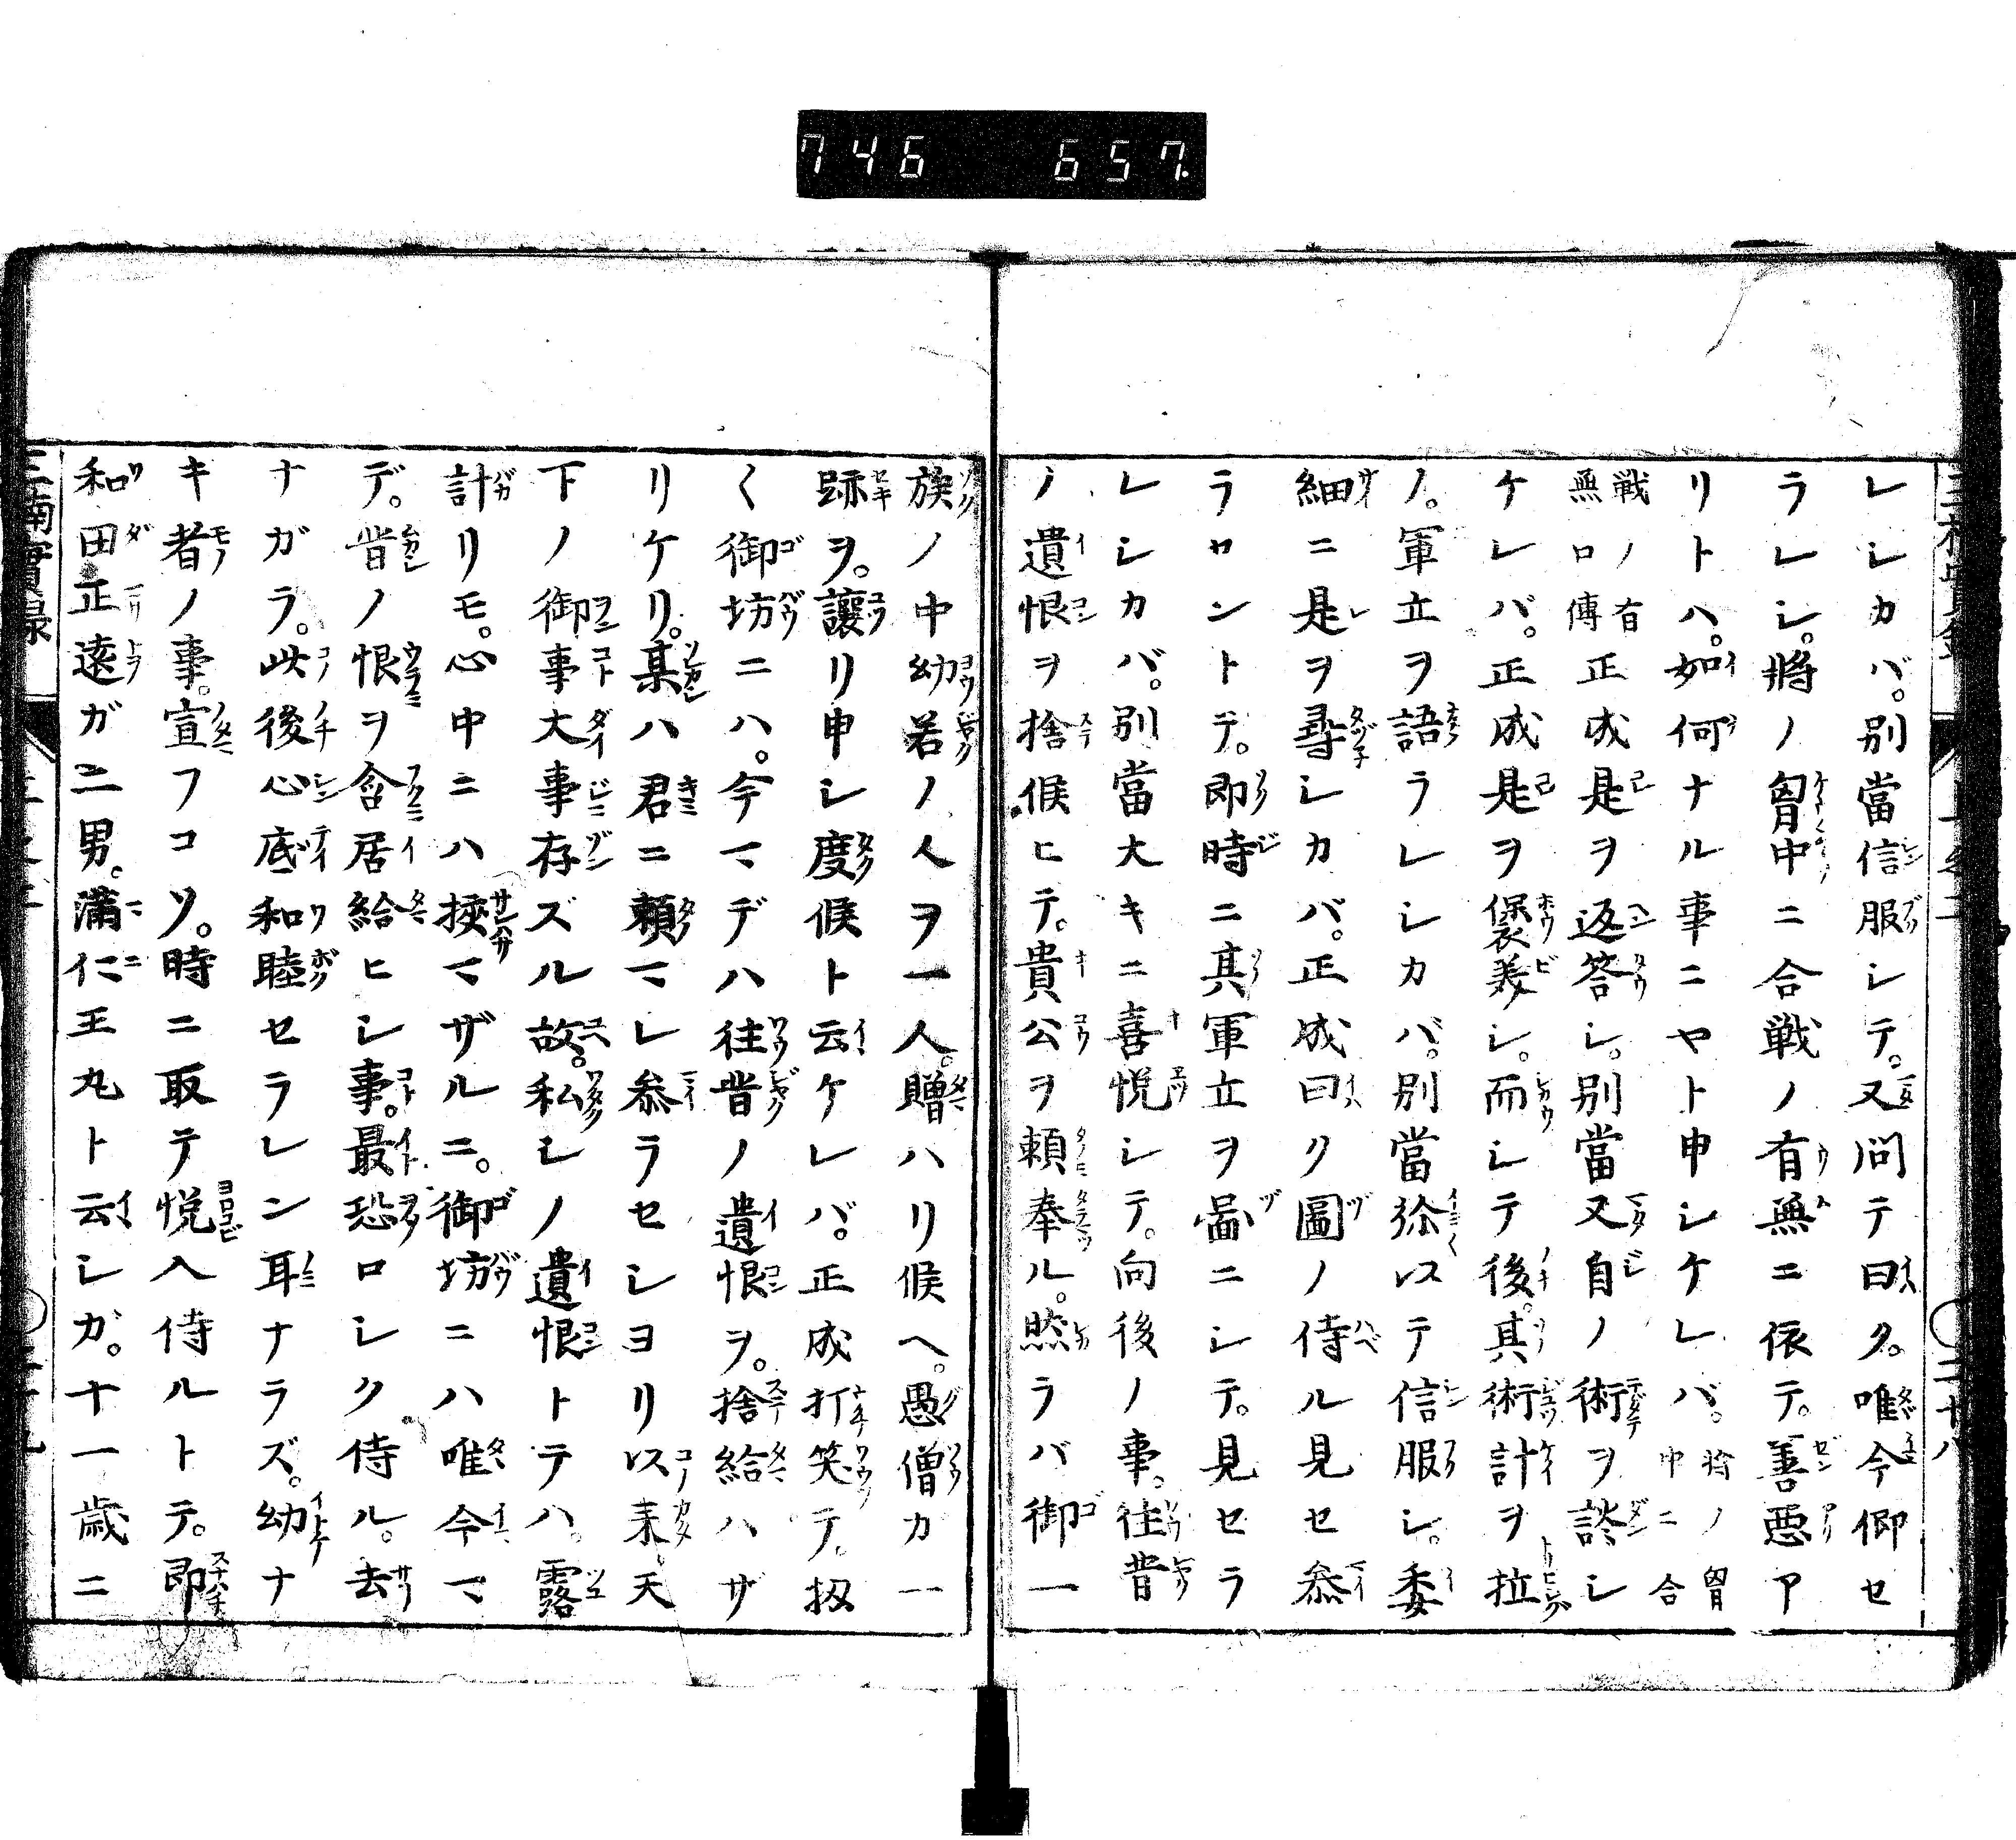 746 657.
レシカバ。別當信服シテ。又問テ曰ク。唯今仰セ
ラレシ。將ノ胷中ニ合戦ノ有無ニ依テ。善惡ア
リトハ。如何ナル事ニヤト申シケレバ。將ノ胷中ニ合
戦ノ有無口傳正成是ヲ返答シ。別當又自ノ術ヲ談シ
ケレバ。正成是ヲ褒美シ。而シテ後。其術計ヲ拉
ノ。軍立ヲ語ラレシカバ。別當徐以テ信服シ。委
細ニ是ヲ尋シカバ。正成曰ク圖ノ侍ル見セ参
ラセントテ。即時ニ其軍立ヲ畵ニシテ。見セラ
レシカバ。別當大キニ喜悦シテ。向後ノ事。往昔
ノ遺恨ヲ捨候ヒテ。貴公ヲ頼奉ル。然ラバ御一
族ノ中幼若ノ人ヲ一人。贈ハリ候ヘ。愚僧カ一
跡ヲ。讓リ申シ度候ト云ケレバ。正成打笑テ。扨
〱御坊ニハ。今マデハ往昔ノ遺恨ヲ。捨給ハザ
リケリ。某ハ君ニ頼マレ参ラセシヨリ以来天
下ノ御事大事存ズル故。私シノ遺恨トテハ。露
計リモ。心中ニハ挾マザルニ。御坊ニハ唯今マ
デ。昔ノ恨ヲ含居給ヒシ事。最恐ロシク侍ル。去
ナガラ。此後心底和睦セラレン耳ナラズ。幼ナ
キ者ノ事。宣フコソ。時ニ取テ悦入侍ルトテ。即
和田正遠ガ二男。満仁王丸ト云シガ。十一歳ニ